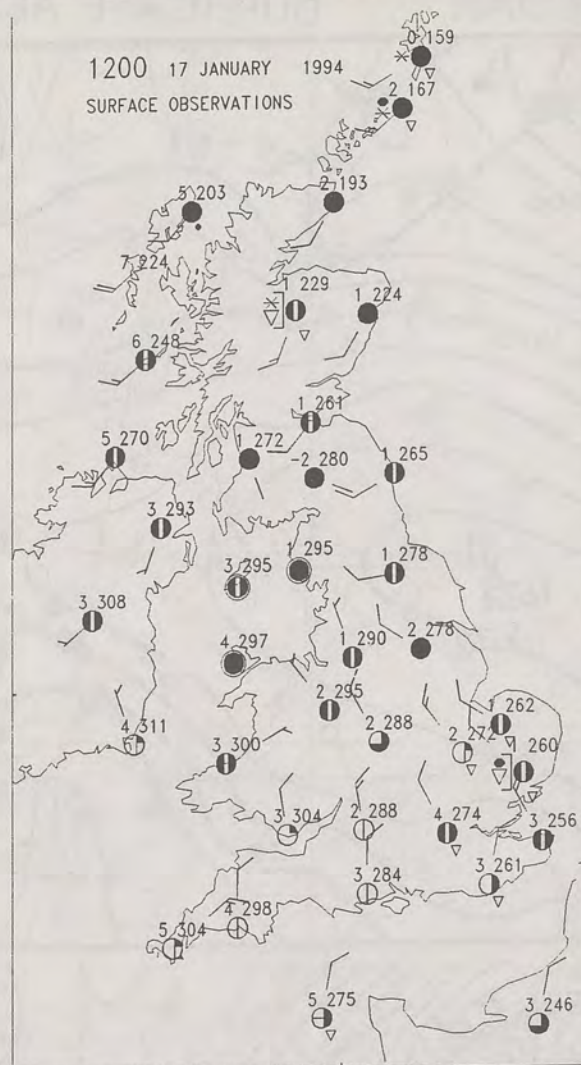 0 159
1200 17 JANUARY 1994
2 167
SURFACE OBSERVATIONS
2 193
5 203
7 224
1 229
1 224
6 248
1 261
5 270
1 272
-2 280
1 265
3 293
3 295
1 295
1 278
3 308
4 297
1 290
2 278
2 295
1 262
4 311
2 288
2 272
3 300
1 260
3 304
2 288
4 274
3 256
3 284
3 261
5 304
4 298
5 275
3 246